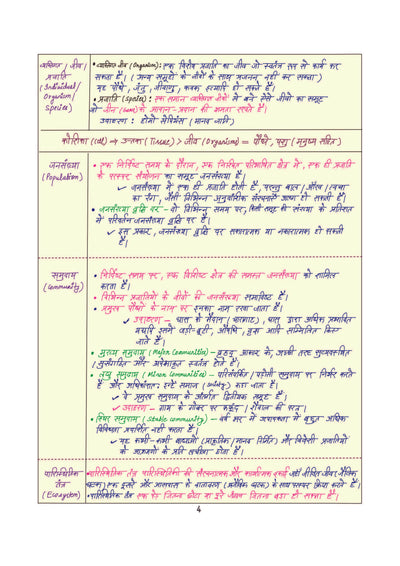 व्यक्तिगत / जीव /
प्रजाति
(Individual/
Organism/
Species)
• व्यक्तिगत जीव (Organism): एक विशेष प्रजाति का जीव जो स्वतंत्र रूप से कार्य कर
सकता है। (अन्य समूहों के जीवों के साथ प्रजनन नहीं कर सकता)
यह पौधे, जंतु, जीवाणु, कवक इत्यादि हो सकते हैं।
• प्रजाति (Species): एक समान व्यक्तिगत जीवों से बने ऐसे जीवों का समूह
जो जीन (Gene) के आदान-प्रदान की क्षमता रखते हैं।
उदाहरण: होमो सेपियंस (मानव जाति)
कोशिका (Cell) → ऊतक (Tissue) > जीव (Organism) = पौधे, पशु (मनुष्य सहित)
जनसंख्या
(Population)
• एक निर्दिष्ट समय के दौरान, एक निश्चित परिभाषित क्षेत्र में, एक ही प्रजाति
के परस्पर संयोजन का समूह जनसंख्या है।
✓ जनसंख्या में एक ही प्रजाति होती है, परन्तु बाल / आँख / त्वचा
का रंग, जैसी विभिन्न आनुवंशिक संरचनाएँ अलग हो सकती हैं।
• जनसंख्या वृद्धि दर - दो विभिन्न समय पर, किसी समूह की संख्या के प्रतिशत
में परिवर्तन जनसंख्या वृद्धि दर है।
✓ इस प्रकार, जनसंख्या वृद्धि दर सकारात्मक या नकारात्मक हो सकती
है।
समुदाय
(Community)
• निर्दिष्ट समय पर, एक विशिष्ट क्षेत्र की समस्त जनसंख्या को शामिल
करता है।
• विभिन्न प्रजातियों के जीवों की जनसंख्या समाविष्ट है।
• प्रमुख पौधों के नाम पर इनका नाम रखा जाता है।
✓ उदाहरण - घास के मैदान (चारागाह), घास द्वारा अधिक प्रभावित
यद्यपि उसमें जड़ी-बूटी, औषधि, वृक्ष आदि सम्मिलित किए
जाते हैं।
• मुख्य समुदाय (Major Communities) - वृहद् आकार के, अच्छी तरह सुव्यवस्थित
/ सुसंगठित और अपेक्षाकृत स्वतंत्र होते हैं।
• लघु समुदाय (Minor Communities) - परिसंवर्धित / पड़ोसी समुदाय पर निर्भर करते
है और अधिकांशतः इन्हें समाज कहा जाता है।
✓ ये प्रमुख समुदाय के अंतर्गत द्वितीयक समूह हैं।
✓ उदाहरण - गाय के गोबर पर कवक / शैवाल की परत।
• स्थिर समुदाय (Stable community) - वर्ष भर में जलवायु में बहुत अधिक
विविधता प्रदर्शित नहीं करता है।
✓ यह कभी-कभी बाधाओं (प्राकृतिक / मानव निर्मित) और विदेशी प्रजातियों
के आक्रमणों के प्रति लचीला होता है।
पारिस्थितिक
तंत्र
(Ecosystem)
• पारिस्थितिक तंत्र पारिस्थितिकी की संरचनात्मक और कार्यात्मक इकाई जहाँ जीवित जीव (जैविक
घटक) एक दूसरे और आसपास के वातावरण (अजैविक घटक) के साथ परस्पर क्रिया करते हैं।
• पारिस्थितिक तंत्र एक पेड़ जितना छोटा या पूरे जंगल जितना बड़ा हो सकता है।
4